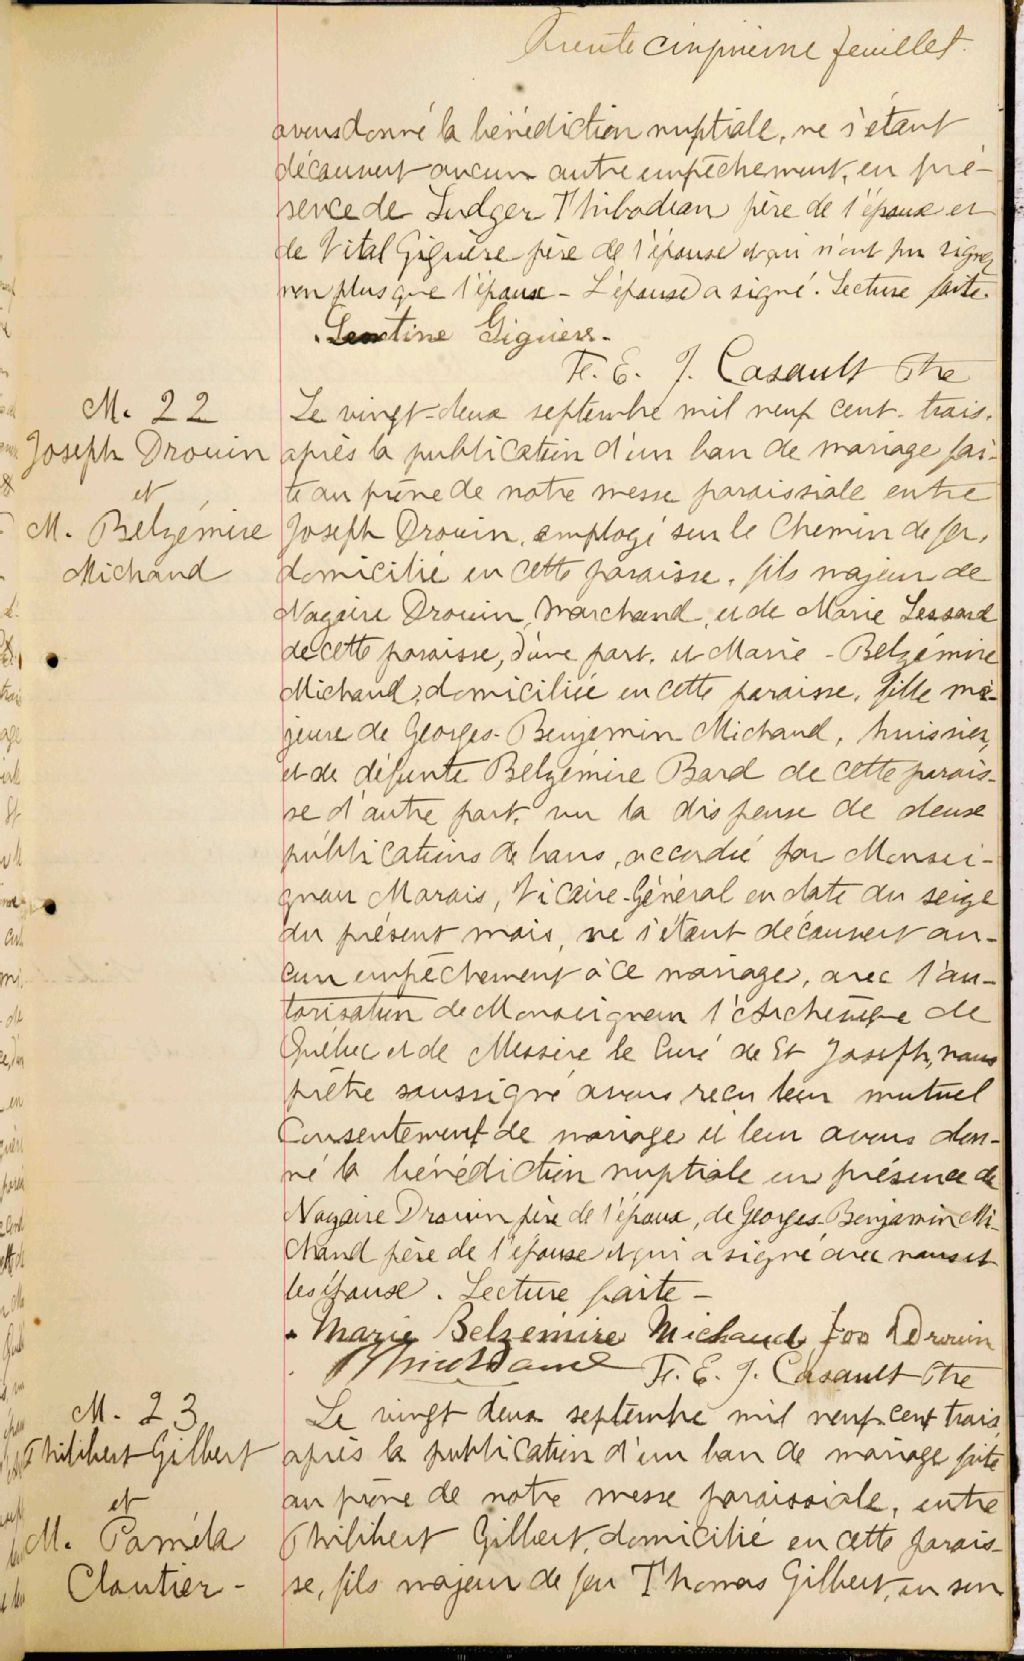 Trente cinquieme feuillet.
avons donné la bénédiction nuptiale, ne s'étant
découvert aucun autre empêchement, en pré-
sence de Ludger Thibodeau père de l'époux et
de Vital Giguère père de l'épouse et qui n'ont pu signer
non plus que l'époux - L'épouse a signé. Lecture faite.
Giguere.
F. E. J. Casault Ptre
M. 22
Joseph Drouin
et
M. Belzémire
Michaud
Le vingt-deux septembre mil neuf cent-trois.
après la publication d'un ban de mariage fai-
te au prône de notre messe paroissiale entre
Joseph Drouin, employé sur le Chemin de fer,
domicilié en cette paroisse, fils majeur de
Nazaire Drouin, Marchand, et de Marie Lessard
de cette paroisse, d'une part, et Marie-Belzémire
Michaud, domiciliée en cette paroisse, fille ma-
jeure de Georges-Benjamin Michaud, huissier,
et de défunte Belzémire Bard de cette parois-
se d'autre part, vu la dispense de deux
publications de bans, accordée par Monsei-
gneur Marois, Vicaire-Général en date du seize
du présent mois, ne s'étant découvert au-
cun empêchement à ce mariage, avec l'au-
torisation de Monseigneur l'Archevêque de
Québec et de Messire le Curé de St Joseph, nous
prêtre soussigné avons reçu leur mutuel
Consentement de mariage et leur avons don-
né la bénédiction nuptiale en présence de
Nazaire Drouin père de l'époux, de Georges-Benjamin Mi-
chaud père de l'épouse et qui a signé avec nous et
les époux. Lecture faite -
Marie Belzemire Michaud Jos Drouin
F. E. J. Casault Ptre
M. 23
Philibert Gilbert
et
M. Paméla
Cloutier -
Le vingt deux septembre mil neuf cent trois
après la publication d'un ban de mariage faite
au prône de notre messe paroissiale, entre
Philibert Gilbert, domicilié en cette parois-
se, fils majeur de feu Thomas Gilbert, en son